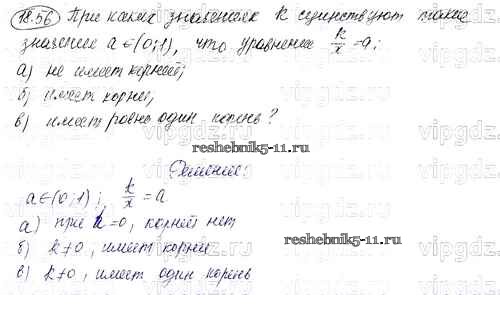 18.56 При каких значениях k существуют такие
значение a∈(0;1), что уравнение k/x = a:
а) не имеет корней;
б) имеет корни;
в) имеет ровно один корень?
reshebnik5-11.ru
Решение:
a∈(0;1); k/x = a
а) при k=0, корней нет
б) k≠0, имеет корни
reshebnik5-11.ru
в) k≠0, имеет один корень
vipgdz.ru